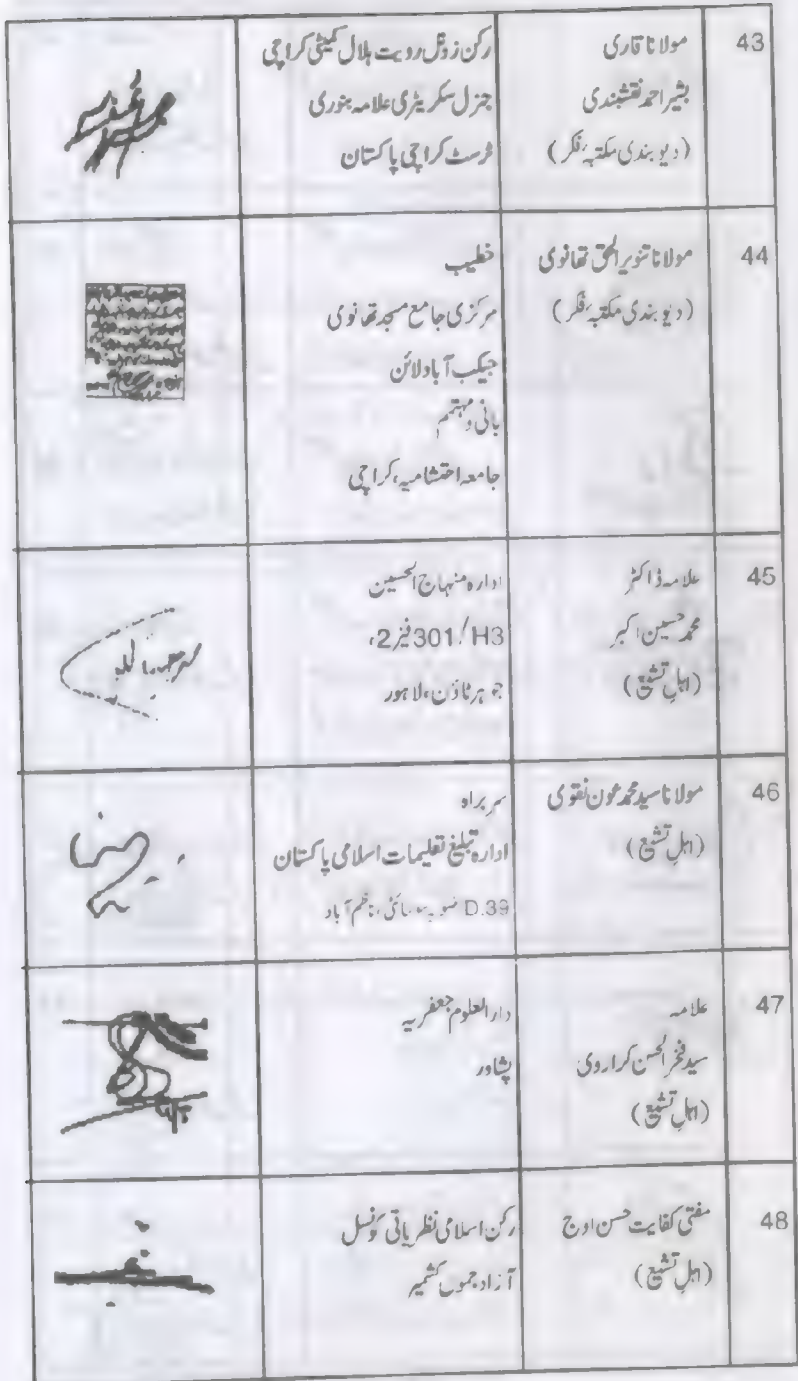 43
مولانا قاری
بشیر احمد نقشبندی
(دیوبندی مکتبہ فکر)
رکن زونل رویت ہلال کمیٹی کراچی
جنرل سکریٹری علامہ بنوری
ٹرسٹ کراچی پاکستان
44
مولانا تنویر الحق تھانوی
(دیوبندی مکتبہ فکر)
خطیب
مرکزی جامع مسجد تھانوی
جیکب آباد لائن
بانی و مہتمم
جامعہ احتشامیہ، کراچی
45
علامہ ڈاکٹر
محمد حسین اکبر
(اہل تشیع)
ادارہ منہاج الحسین
301/H3 فیز 2،
جوہر ٹاؤن، لاہور
46
مولانا سید محمد عون نقوی
(اہل تشیع)
سربراہ
ادارہ تبلیغ تعلیمات اسلامی پاکستان
D.39 سوسائٹی، ناظم آباد
47
علامہ
سید فخر الحسن کراروی
(اہل تشیع)
دارالعلوم جعفریہ
پشاور
48
مفتی کفایت حسن اوج
(اہل تشیع)
رکن اسلامی نظریاتی کونسل
آزاد جموں کشمیر